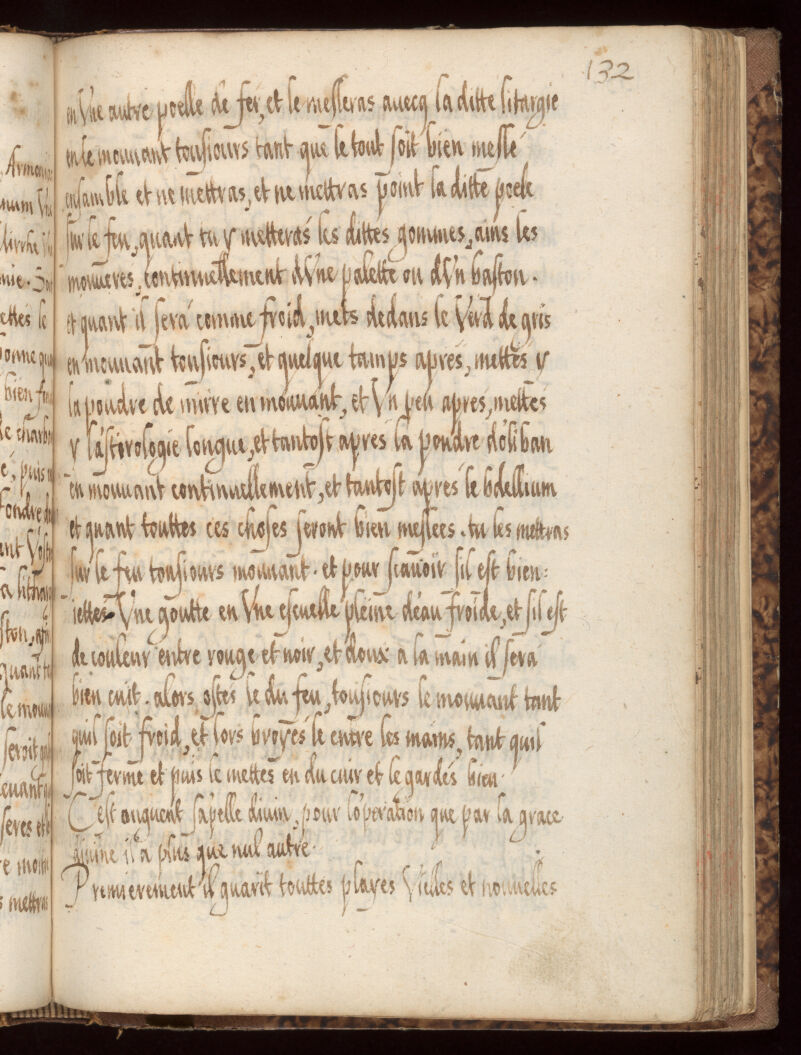 132
en Vne autre poelle de fer, et le mesleras auecq la ditte litargie
en le mouuant tousiours tant que le tout soit bien mesle
ensamble et ne mettras, et ne mettras point la ditte poele
sur le feu, quant tu y metteras les dittes gommes, ains les
mouueres, continuellement dVne palette ou dVn baston.
et quant il sera comme froid, mets dedans le Verd de gris
en mouuant tousiours, et quelque tamps apres, mettes y
la poudre de mirre en mouuant, et Vn peu apres, mettes
y lastrologie longue, et tantost apres la poudre doliban
en mouuant continuellement, et tantost apres le bdellium
et quant touttes ces choses seront bien meslees. tu les mettras
sur le feu tousiours mouuant. et pour scauoir sil est bien:
iettes Vne goutte en Vne escuelle pleine deau froide, et sil est
de couleur entre rouge et noir, et doux a la main il sera
bien cuit. alors ostes le du feu, tousiours le mouuant tant
quil soit froid, et lors broyes le entre les mains, tant quil
soit ferme et puis le mettes en du cuir et le gardes bien.
Cest onguent sapelle diuin, pour loperation que par la grace
diuine il a plus que nul autre.
Premierement il guarit touttes playes Vielles et nouuelles